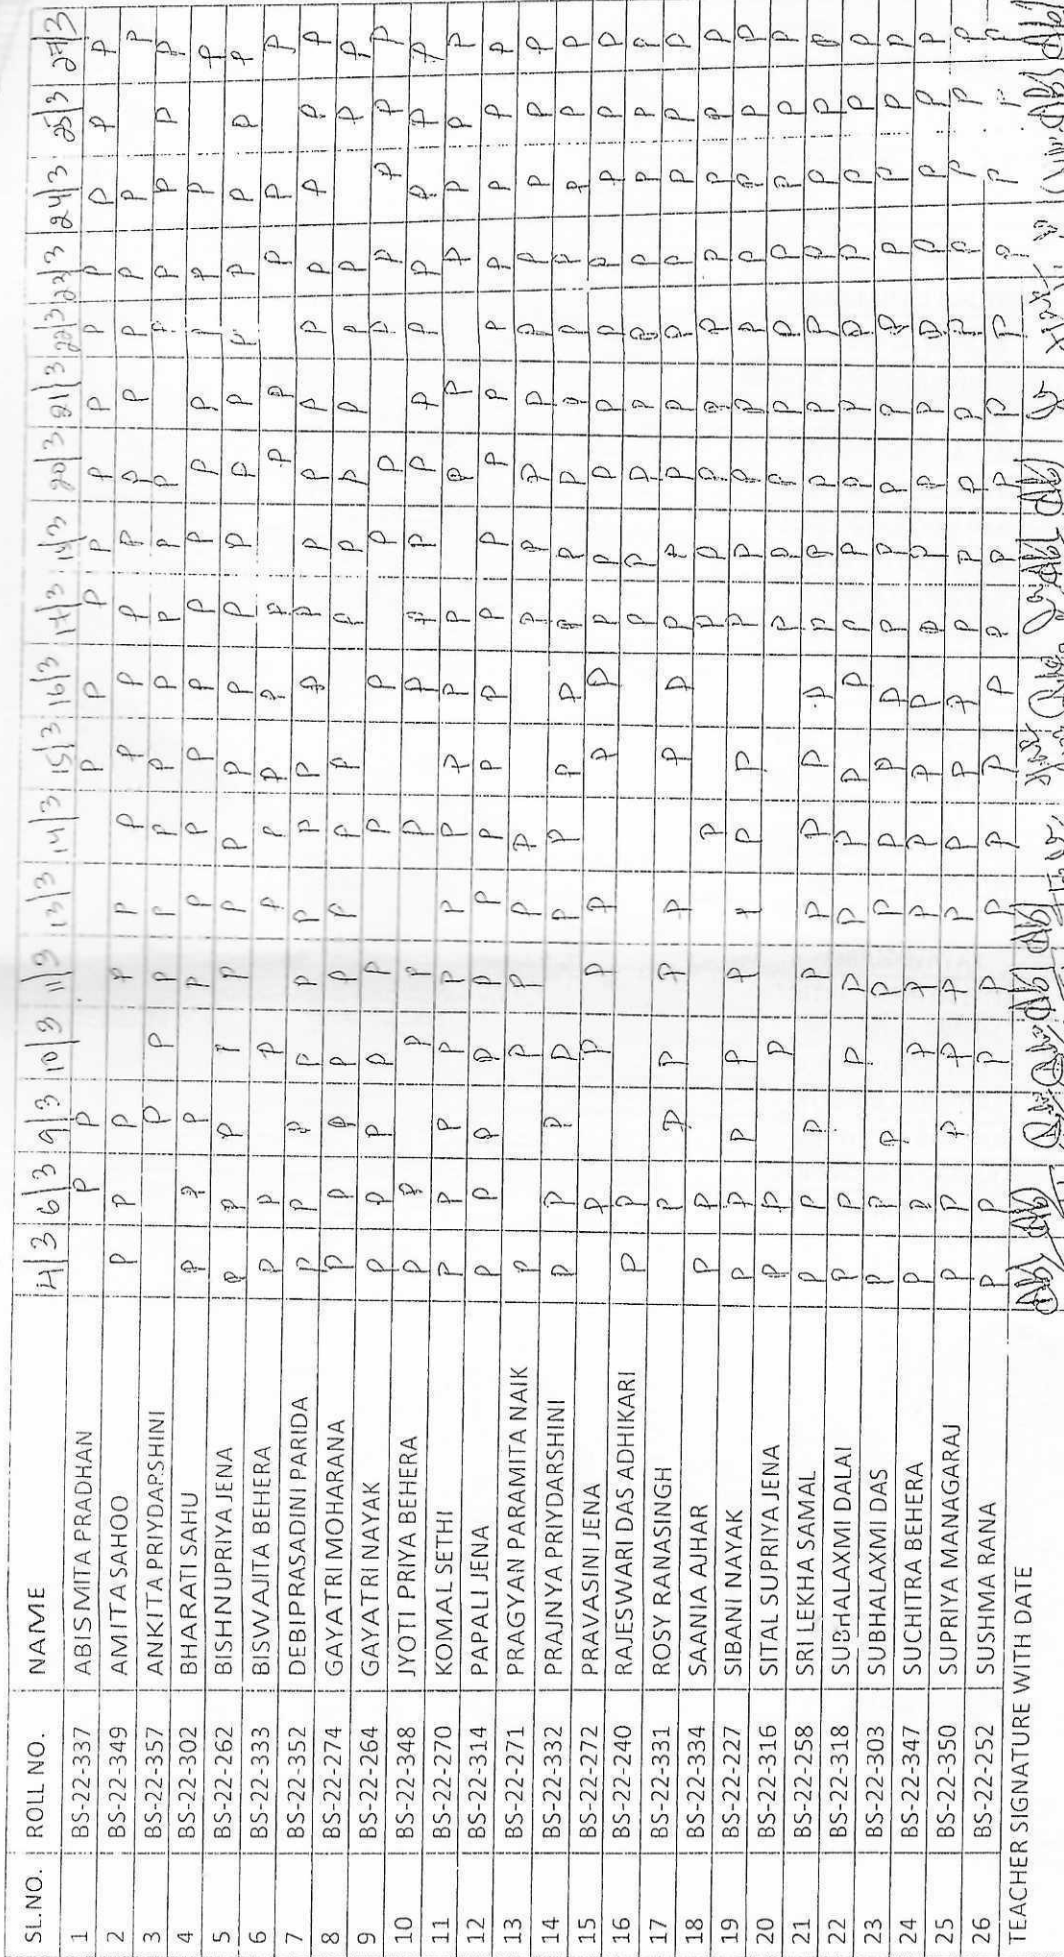 SL.NO. ROLL NO. NAME 4/3 6/3 9/3 10/3 11/3 13/3 14/3 15/3 16/3 17/3 19/3 20/3 21/3 22/3 23/3 24/3 25/3 27/3
1 BS-22-337 ABISMITA PRADHAN P P P P P P P P P P P P P
2 BS-22-349 AMITA SAHOO P P P P P P P P P P P P P P P P
3 BS-22-357 ANKITA PRIYDARSHINI P P P P P P P P P P P P P P P
4 BS-22-302 BHARATI SAHU P P P P P P P P P P P P P P P P
5 BS-22-262 BISHNUPRIYA JENA P P P P P P P P P P P P P P P P P P
6 BS-22-333 BISWAJITA BEHERA P P P P P P P P P P P P P
7 BS-22-352 DEBIPRASADINI PARIDA P P P P P P P P P P P P P P P P P P
8 BS-22-274 GAYATRI MOHARANA P P P P P P P P P P P P P P P P
9 BS-22-264 GAYATRI NAYAK P P P P P P P P P P P P P P
10 BS-22-348 JYOTI PRIYA BEHERA P P P P P P P P P P P P P P P
11 BS-22-270 KOMAL SETHI P P P P P P P P P P P P P P P P
12 BS-22-314 PAPALI JENA P P P P P P P P P P P P P P P P P P
13 BS-22-271 PRAGYAN PARAMITA NAIK P P P P P P P P P P P P P P
14 BS-22-332 PRAJNYA PRIYDARSHINI P P P P P P P P P P P P P P P P P
15 BS-22-272 PRAVASINI JENA P P P P P P P P P P P P P P P
16 BS-22-240 RAJESWARI DAS ADHIKARI P P P P P P P P P P P
17 BS-22-331 ROSY RANASINGH P P P P P P P P P P P P P P P P
18 BS-22-334 SAANIA AJHAR P P P P P P P P P P P P
19 BS-22-227 SIBANI NAYAK P P P P P P P P P P P P P P P P P
20 BS-22-316 SITAL SUPRIYA JENA P P P P P P P P P P P P
21 BS-22-258 SRI LEKHA SAMAL P P P P P P P P P P P P P P P P P
22 BS-22-318 SUBHALAXMI DALAI P P P P P P P P P P P P P P P P P
23 BS-22-303 SUBHALAXMI DAS P P P P P P P P P P P P P P P P P
24 BS-22-347 SUCHITRA BEHERA P P P P P P P P P P P P P P P P P
25 BS-22-350 SUPRIYA MANAGARAJ P P P P P P P P P P P P P P P P P P
26 BS-22-252 SUSHMA RANA P P P P P P P P P P P P P P P P P
TEACHER SIGNATURE WITH DATE